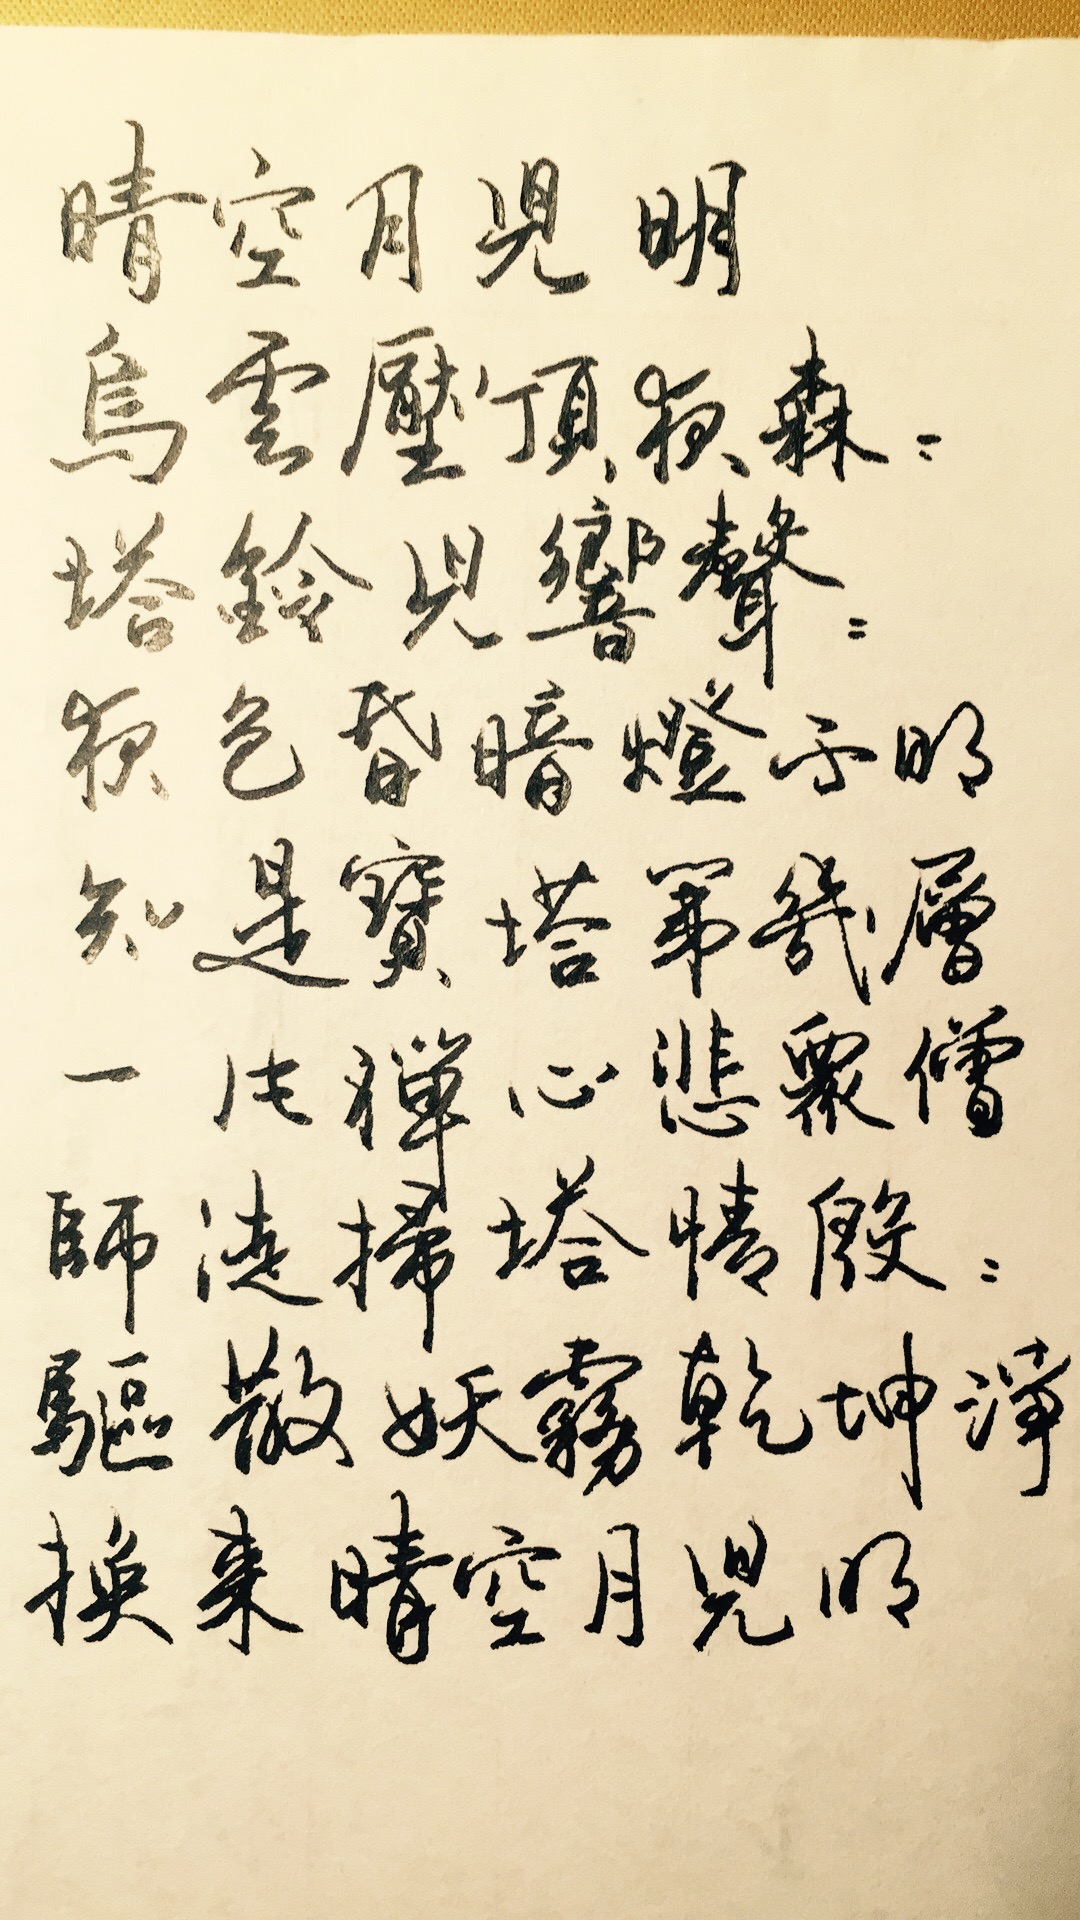 晴空月兒明
烏雲壓頂夜森=
塔鈴兒響聲=
夜色昏暗燈不明
知是寶塔第幾層
一片禪心悲眾僧
師徒掃塔情殷=
驅散妖霧乾坤淨
換来晴空月兒明